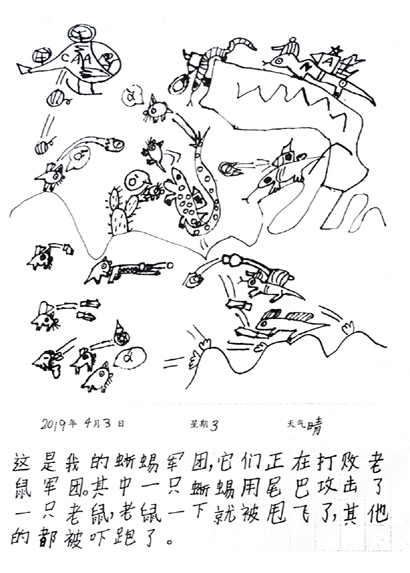 CAA
α
N A
α
α
α
α
α
2019年 4月3日 星期3 天气晴
这是我的蜥蜴军团,它们正在打败老
鼠军团。其中一只蜥蜴用尾巴攻击了
一只老鼠,老鼠一下就被甩飞了,其他
的都被吓跑了。